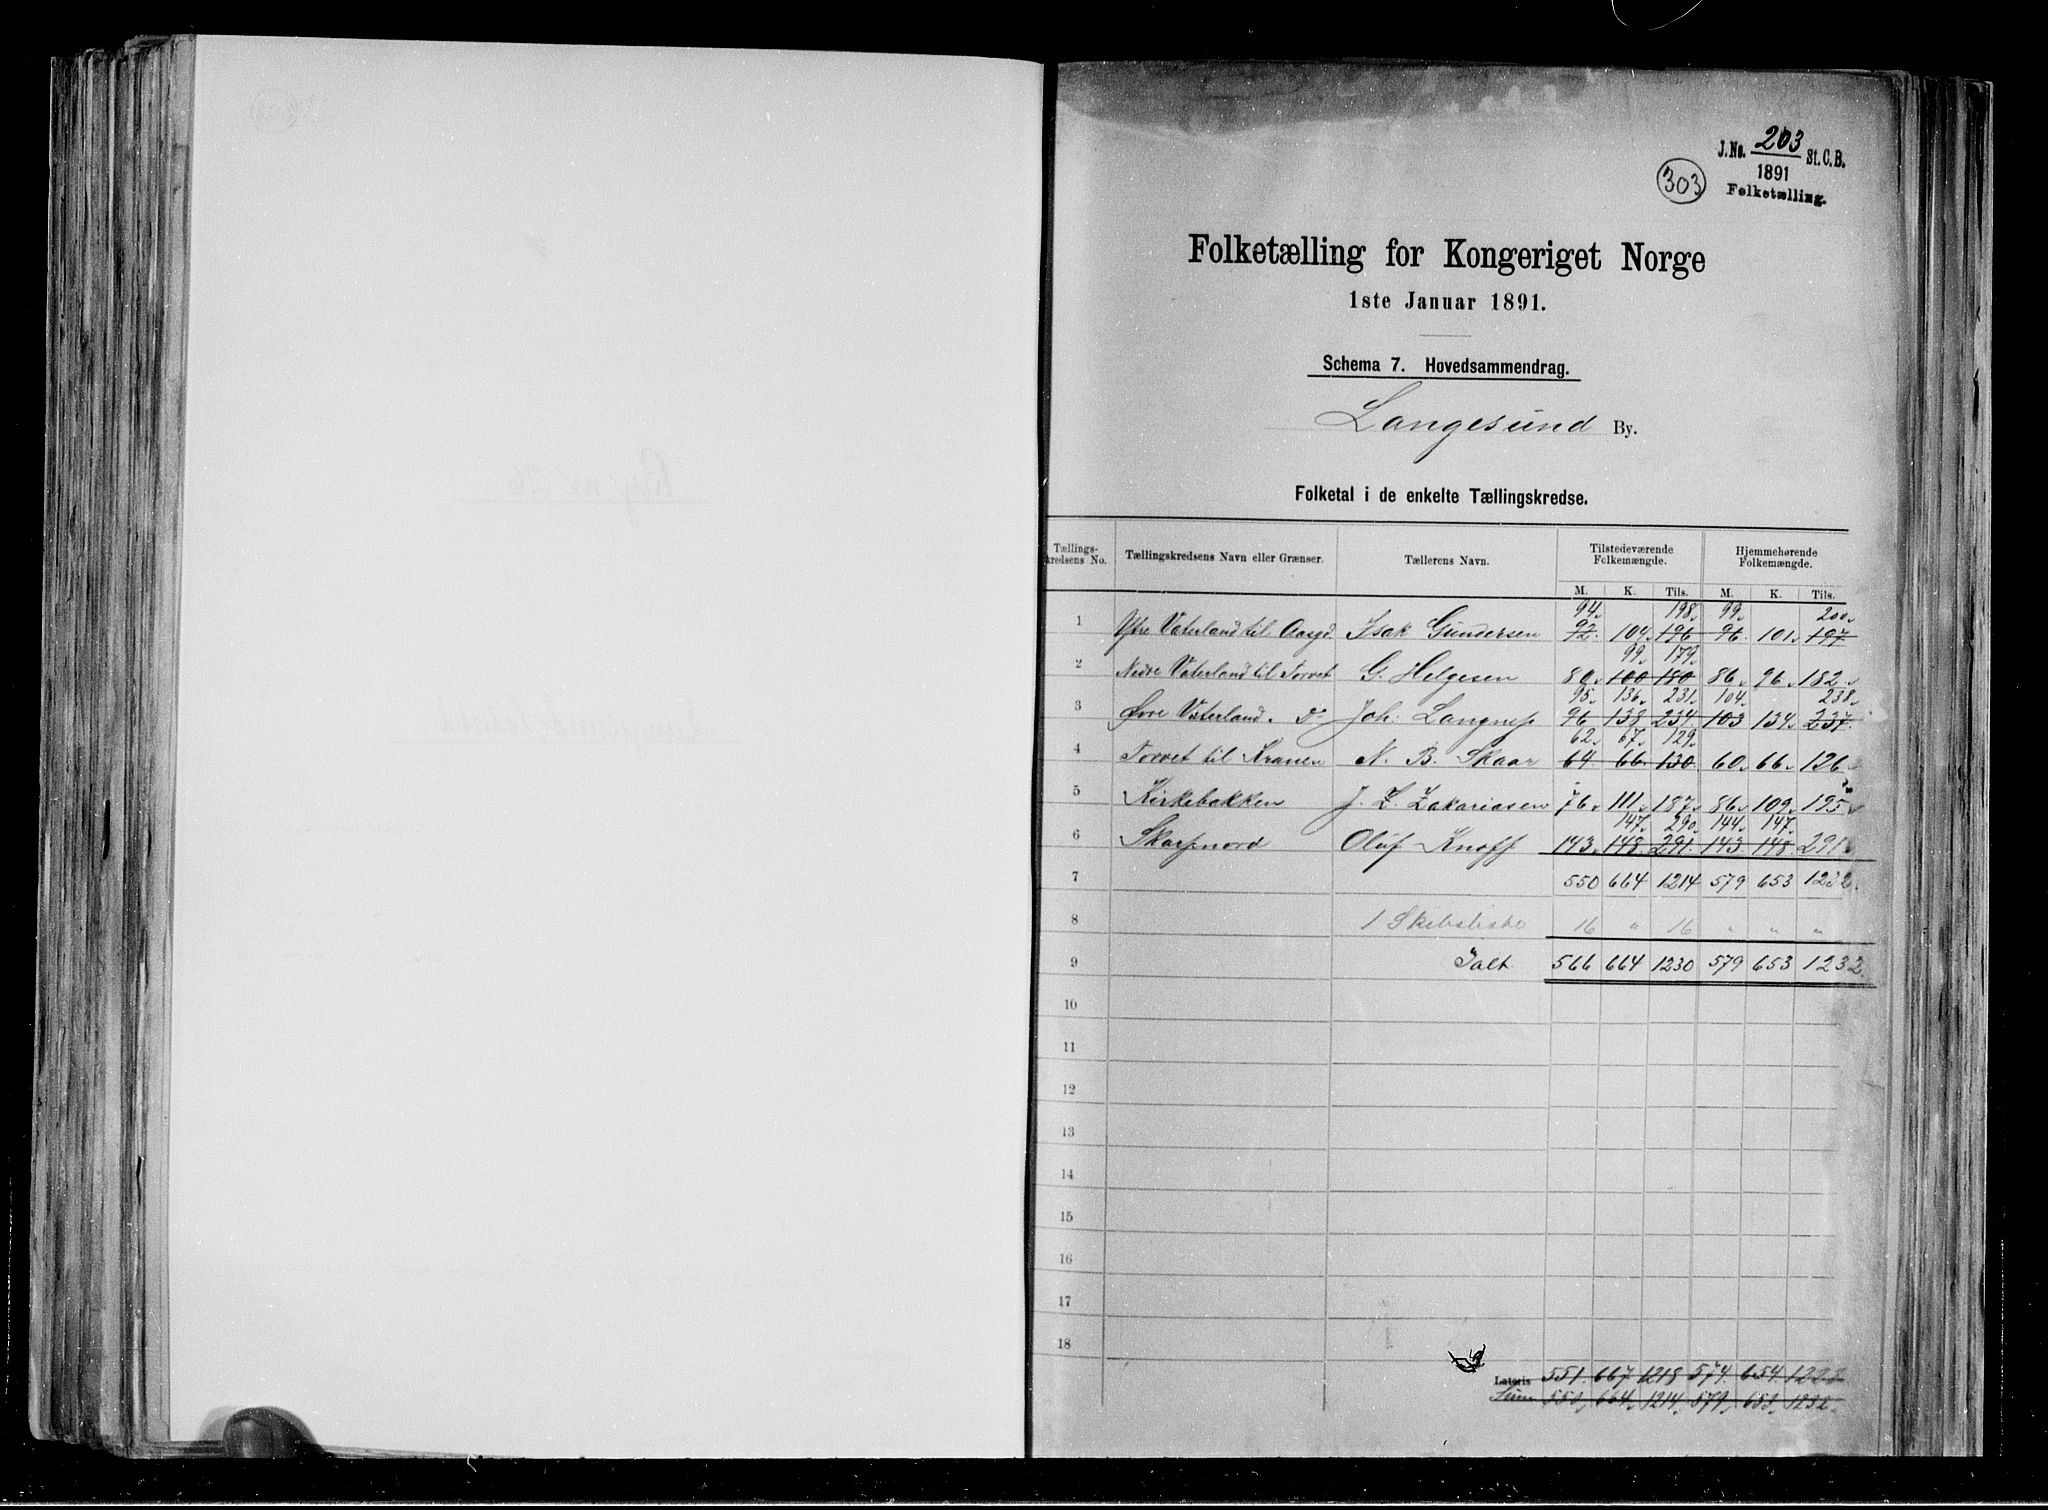 J. No. 203 St. C. B.
1891
Folketælling.
303
Folketælling for Kongeriget Norge
1ste Januar 1891.
Schema 7. Hovedsammendrag.
Langesund By.
Folketal i de enkelte Tællingskredse.
Tællingskredsens No. Tællingskredsens Navn eller Grænser. Tællerens Navn. Tilstedeværende Folkemængde. Hjemmehørende Folkemængde.
M. K. Tils. M. K. Tils.
94 198 99 200
1 Ytre Vaterland til Aasgd. Isak Gundersen 92 104 196 96 101 197
99 179
2 Nedre Vaterland til Torvet G. Helgesen 80 100 180 86 96 182
95 136 231 104 238
3 Øvre Vaterland Do Joh: 96 138 234 103 134 237
62 67 129
4 Torvet til Kranen N. B. Skaar 64 66 130 60 66 126
5 Kirkebakken J. L. Zakariasen 76 111 187 86 109 195
147 290 144 147
6 Skarpnord Oluf Knoff 143 148 291 143 148 291
7 550 664 1214 579 653 1232
8 1 Skibsliste 16 " 16 " " "
9 Ialt 566 664 1230 579 653 1232
10
11
12
13
14
15
16
17
18
Lateris 551 667 1218 574 654
Sum 550 664 1214 579 653 1232